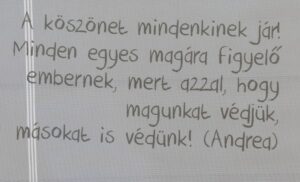 A köszönet mindenkinek jár!
Minden egyes magára figyelő
embernek, mert azzal, hogy
magunkat védjük,
másokat is védünk! (Andrea)